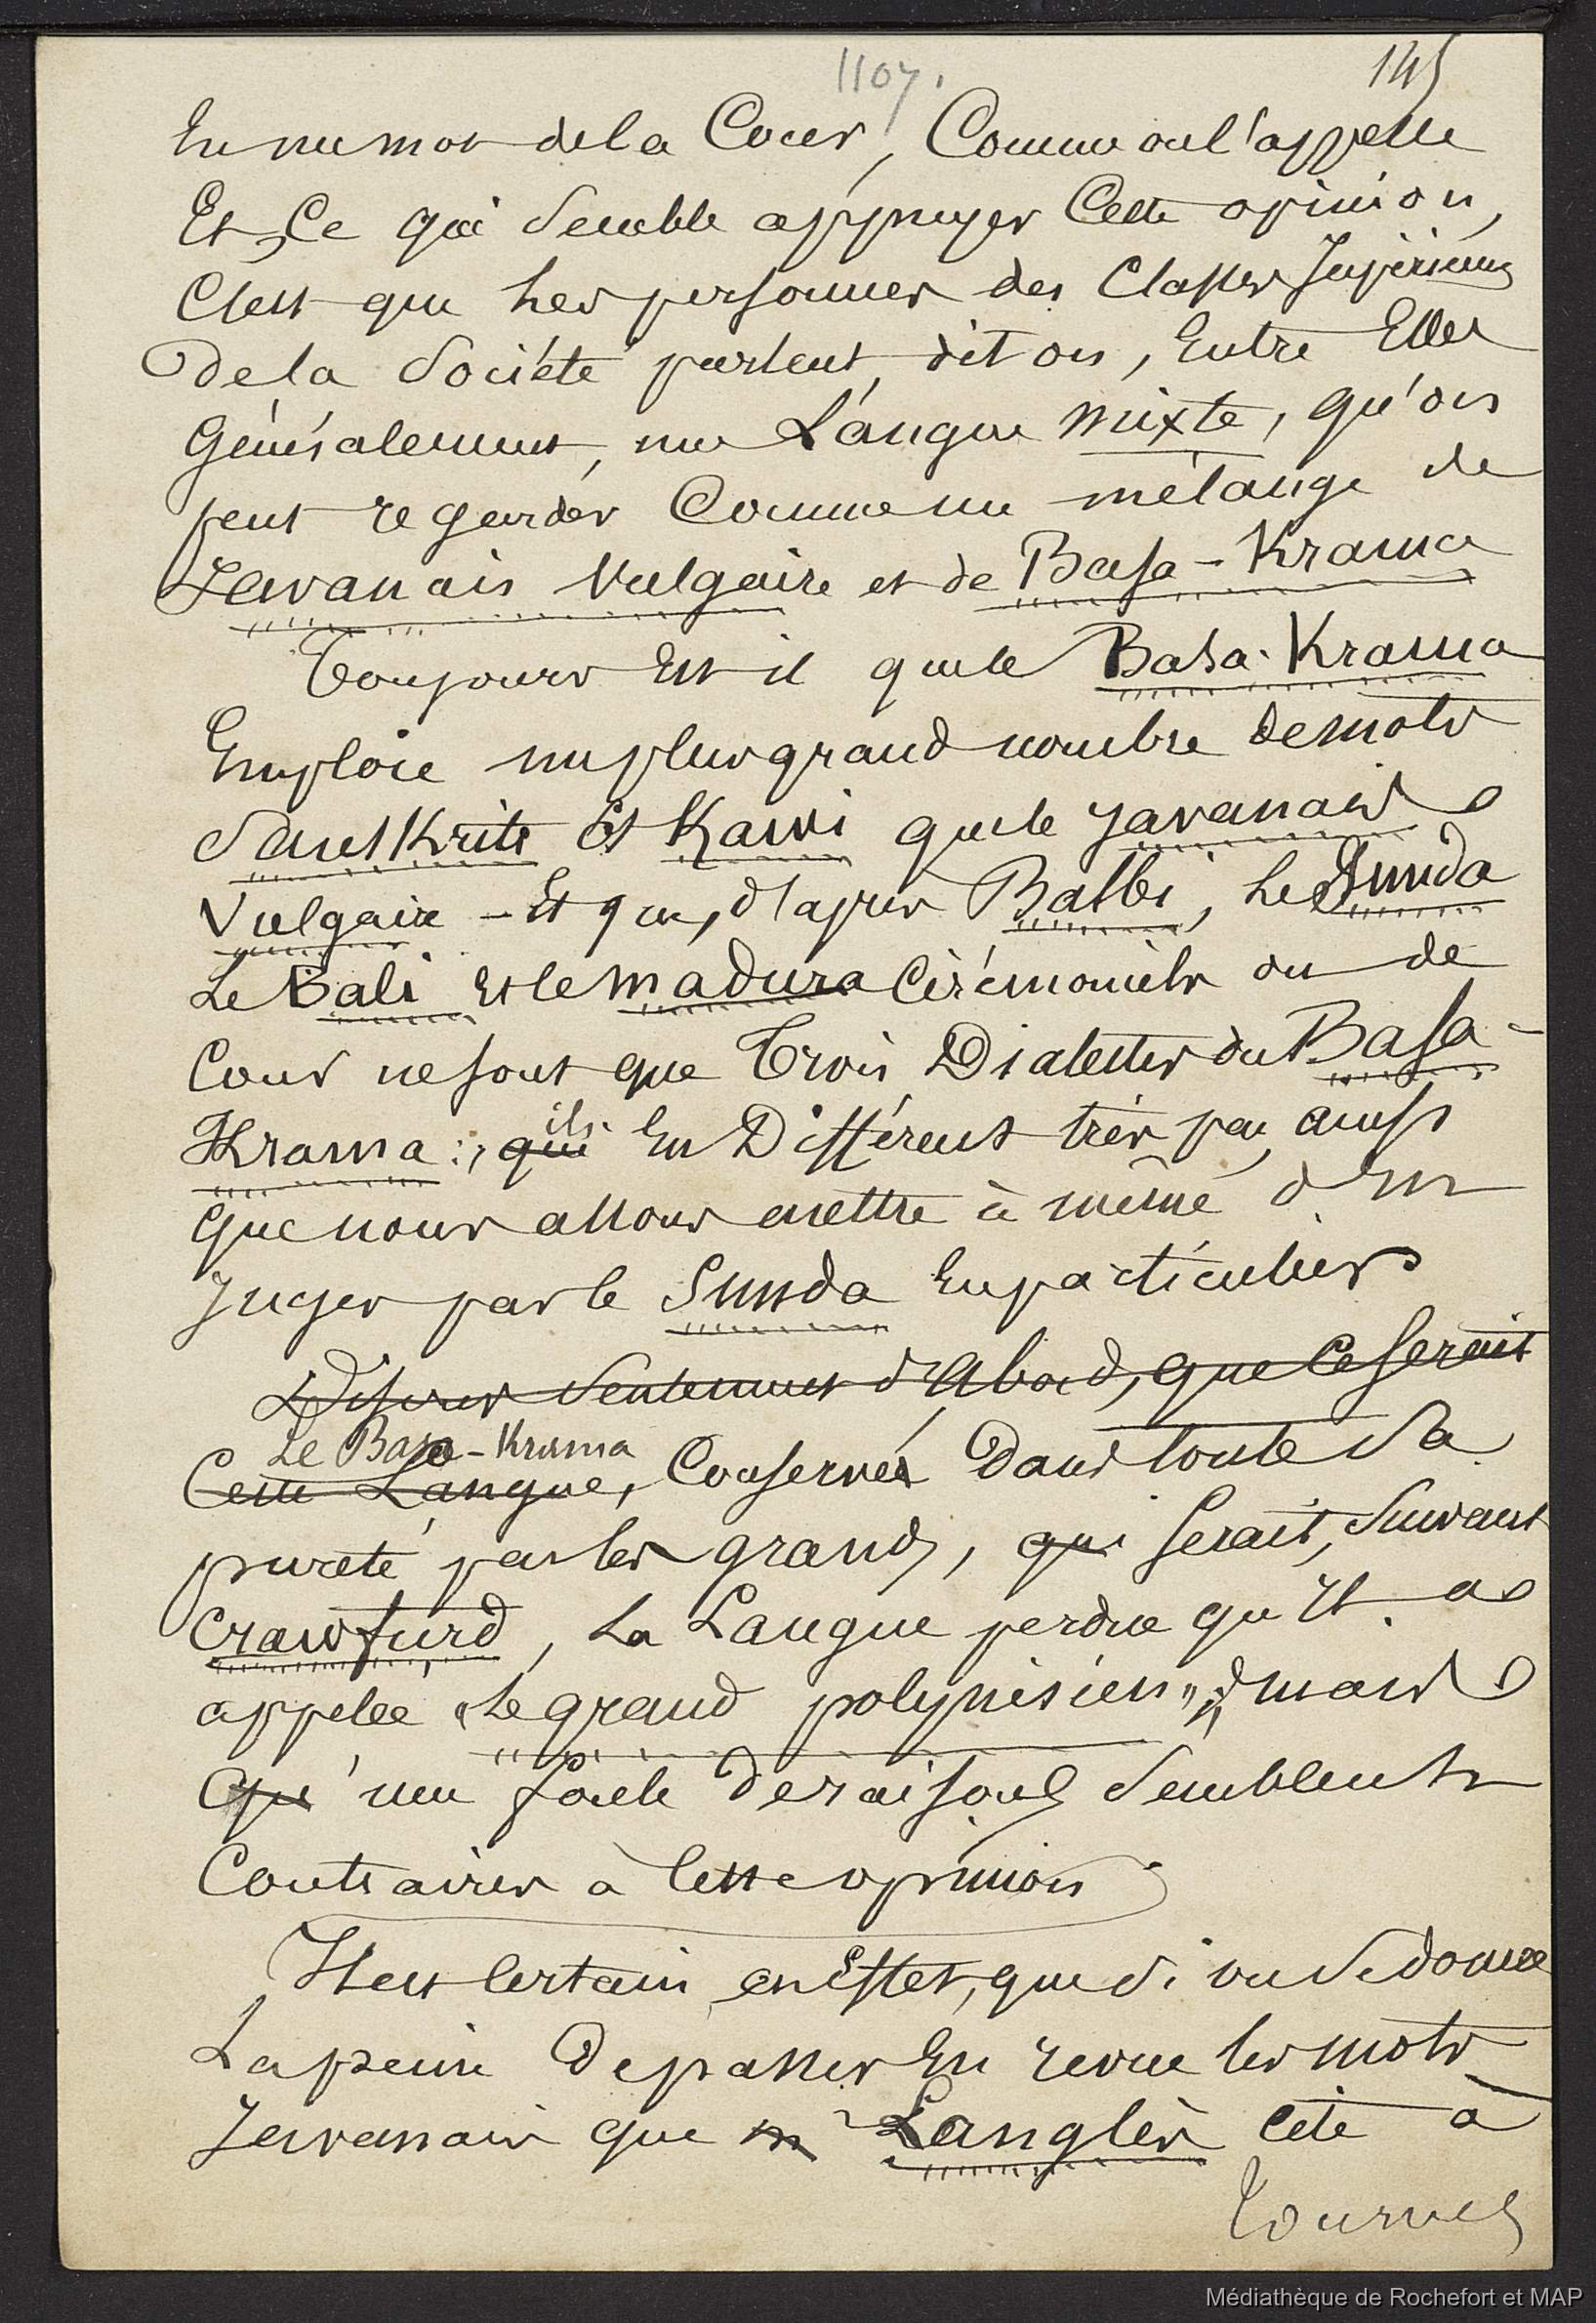 1107.
145
En un mot de la Cour, Comme on l'appelle
Et, Ce qui Semble appuyer Cette opinion,
C'est que Les personnes des Classes Supérieures
de la Société parlent, dit on, Entre Elles
Généralement, une Langue mixte, qu'on
peut regarder Comme un mélange de
Javanais Vulgaire et de Basa-Krama
Toujours Est il que le Basa-Krama
Emploie un plus grand nombre de mots
Sanskrits Et Kawi que le Javanais
Vulgaire - Et que, d'après Balbi, Le Sunda
Le Bali et le madura Cérémoniels ou de
Cour ne sont que Trois Dialectes du Basa-
Krama :, qui ils En Diffèrent très peu, ainsi
que nous allons mettre à même d'En
Juger par le Sunda En particulier
Disons Seulement d'Abord, que Ce Serait
Le Basa-Krama
Cette Langue, Conservée Dans toute Sa
pureté par les grands, qui Serait, Suivant
Crawfurd, La Langue perdue qu'Il a
appelée "Le grand polynésien", mais
qu'une foule de raisons Semblent
Contraires à Cette opinion
Il est Certain, en Effet, que Si on Se donne
La peine De passer En revue les mots
Javanais que m Langlès cite à
Tournez
Médiathèque de Rochefort et MAP